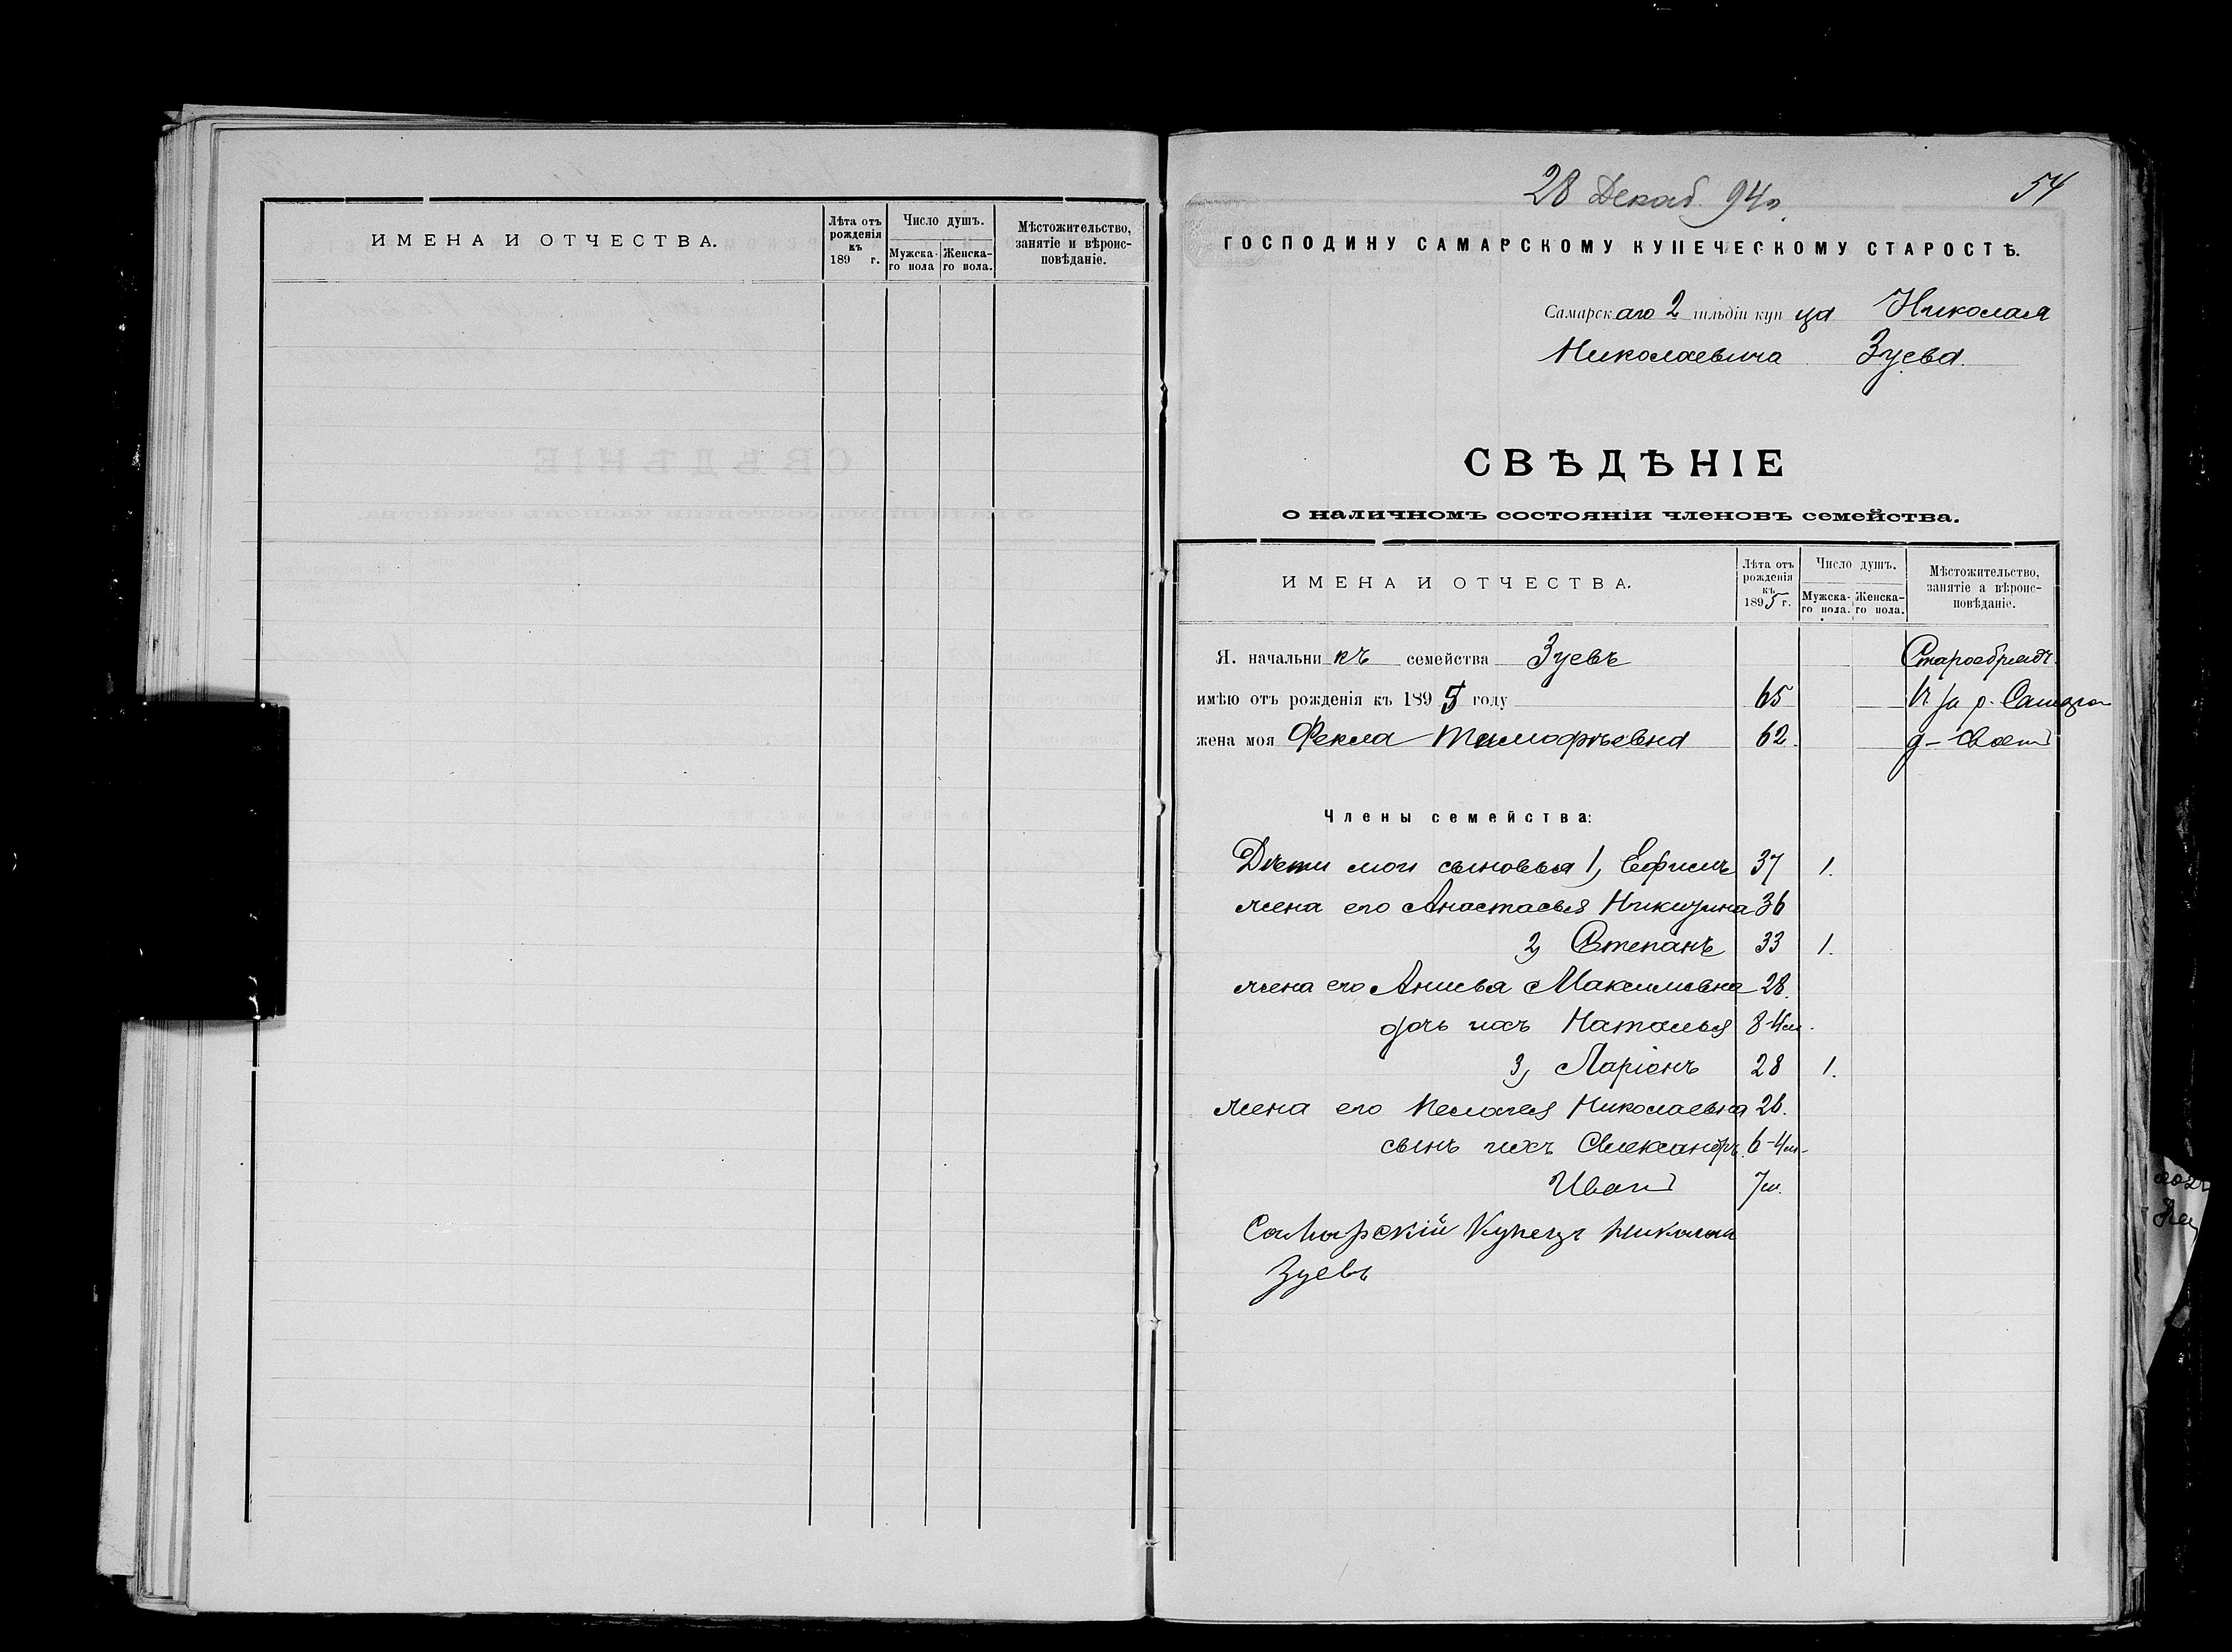 ИМЕНА И ОТЧЕСТВА.
Лѣта отъ рожденія къ 189 г.
Число душъ.
Мужска-го пола
Женска-го пола.
Мѣстожительство, занятіе и вѣроис-повѣданіе.
28 Декаб. 94 г.
54
ГОСПОДИНУ САМАРСКОМУ КУПЕЧЕСКОМУ СТАРОСТѢ.
Самарскаго 2 гильдіи купца Николая
Николаевича Зуева.
СВѢДѢНІЕ
о наличномъ состояніи членовъ семейства.
ИМЕНА И ОТЧЕСТВА.
Лѣта отъ рожденія къ 1895 г.
Число душъ.
Мужска-го пола.
Женска-го пола.
Мѣстожительство, занятіе а вѣроис-повѣданіе.
Я. начальникъ семейства Зуевъ Старообрядч.
имѣю отъ рожденія къ 1895 году 65 р. Самара
жена моя Фекла Тимофѣевна 62. д-
Члены семейства:
Дѣти мои сыновья 1, Ефимъ 37 1.
жена его Анастасья Никитична 36
2, Степанъ 33 1.
жена его Анисья Максимовна 28.
дочь ихъ Наталья 8-4м.
3, Ларіонъ 28 1.
жена его Пелагея Николаевна 26.
сынъ ихъ Александръ 6-4м-
Иванъ 7м.
Самарскій Купецъ Николай
Зуевъ